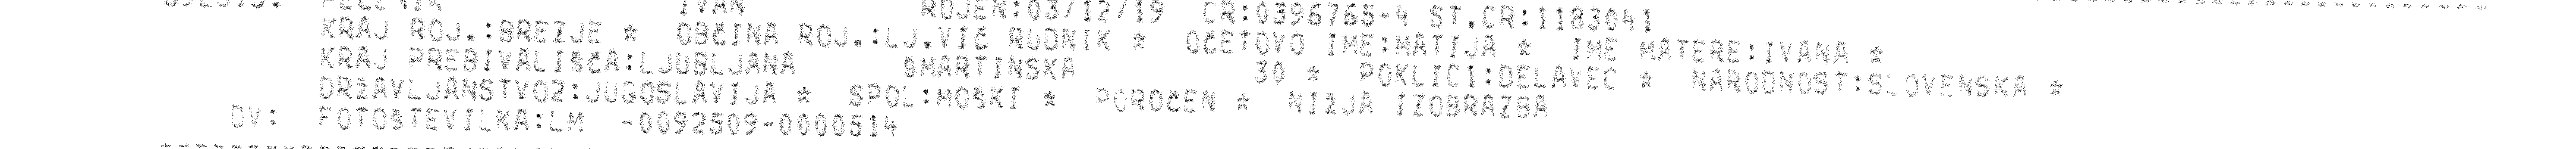 IVAN ROJEN:03/12/19 CR:0396765-4 ST.CR:1183041
KRAJ ROJ.:BREZJE * OBČINA ROJ.:LJ.VIČ RUDNIK * OČETOVO IME:MATIJA * IME MATERE:IVANA *
KRAJ PREBIVALIŠČA:LJUBLJANA ŠMARTINSKA 30 * POKLIC1:DELAVEC * NARODNOST:SLOVENSKA *
DRŽAVLJANSTVO2:JUGOSLAVIJA * SPOL:MOŠKI * POROČEN * NIŽJA IZOBRAZBA
DV: FOTOŠTEVILKA:LM -0092509-0000514